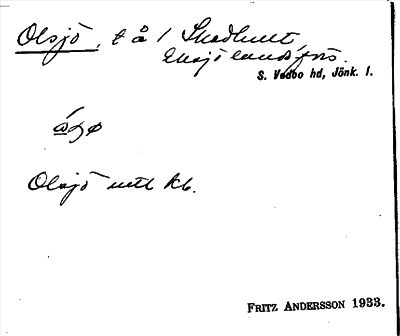 Olsjö, t å 1 Skedhult,
Eksjö landsförs.
S. Vedbo hd, Jönk. l.
Olsjö utl kb.
FRITZ ANDERSSON 1933.